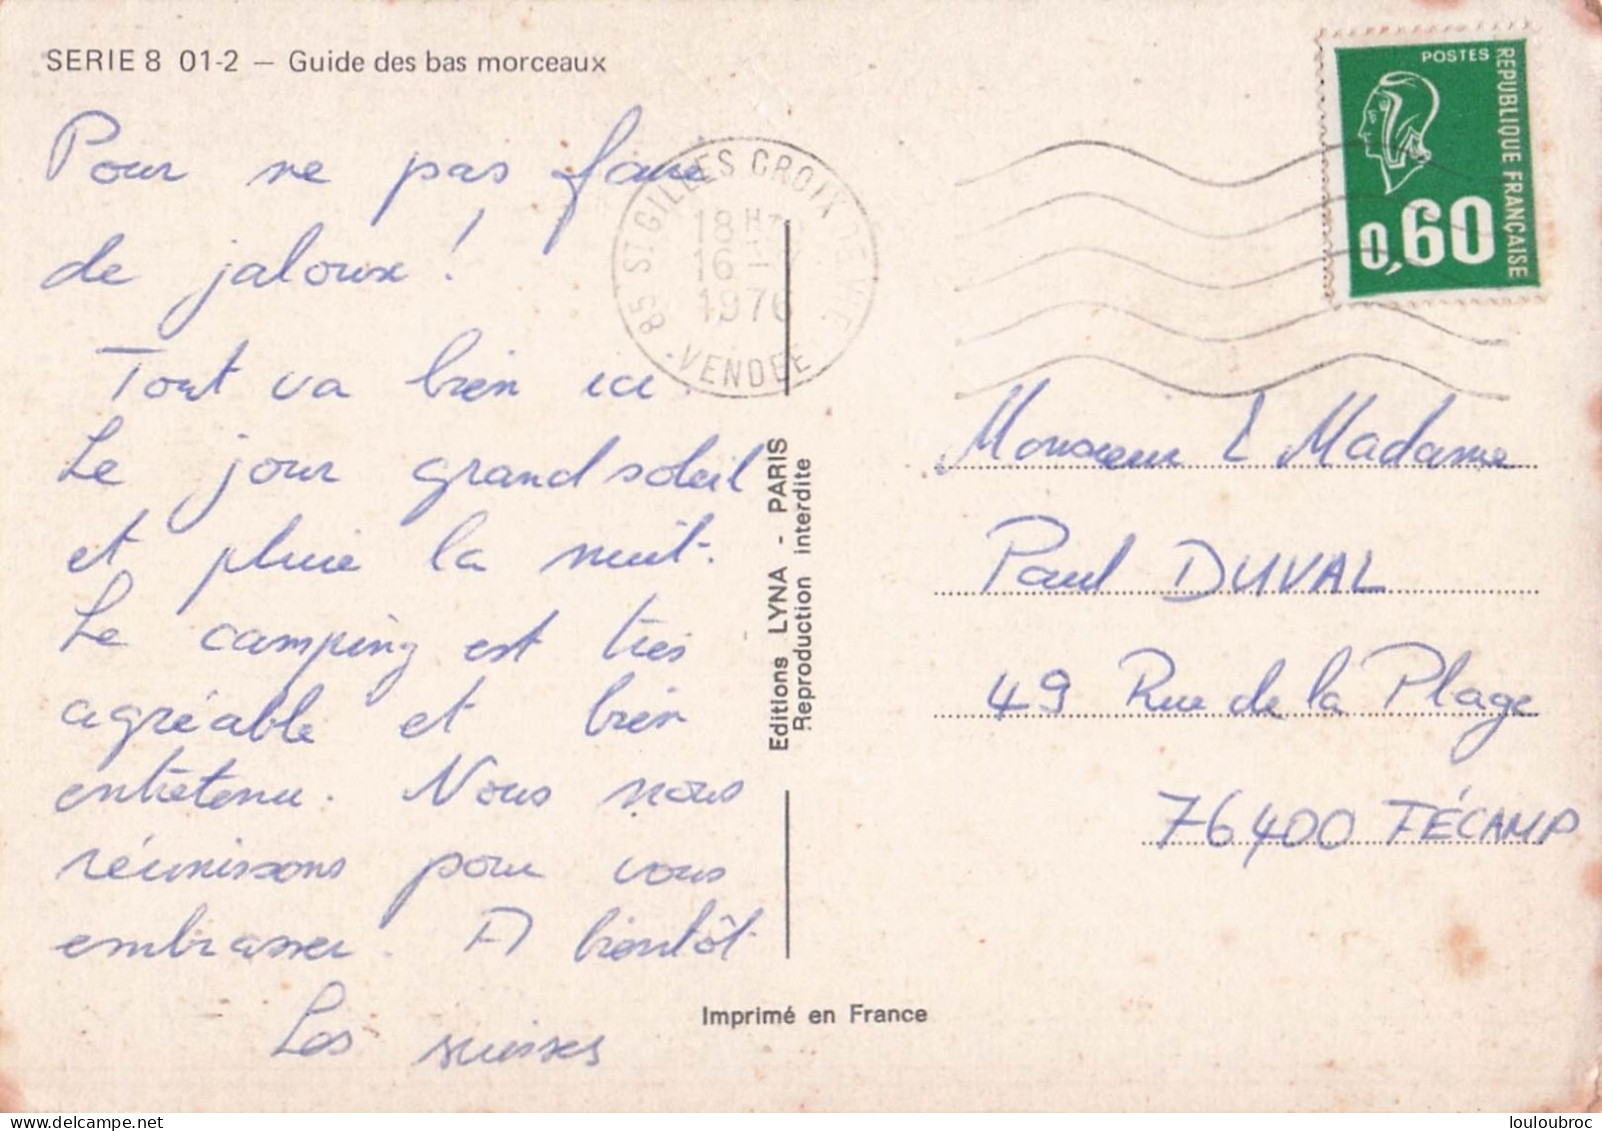 SERIE 8 01-2 — Guide des bas morceaux
Pour ne pas faire
de jaloux !
Tout va bien ici.
Le jour grand soleil
et pluie la nuit.
Le camping est très
agréable et bien
entretenu. Nous nous
réunissons pour vous
embrasser. A bientôt
Les suisses
85 ST GILLES CROIX DE VIE
18H
16
1976
VENDEE
Editions LYNA - PARIS
Reproduction interdite
Imprimé en France
POSTES
REPUBLIQUE FRANÇAISE
0,60
Monsieur & Madame
Paul DUVAL
49 Rue de la Plage
76400 FÉCAMP
louloubroc